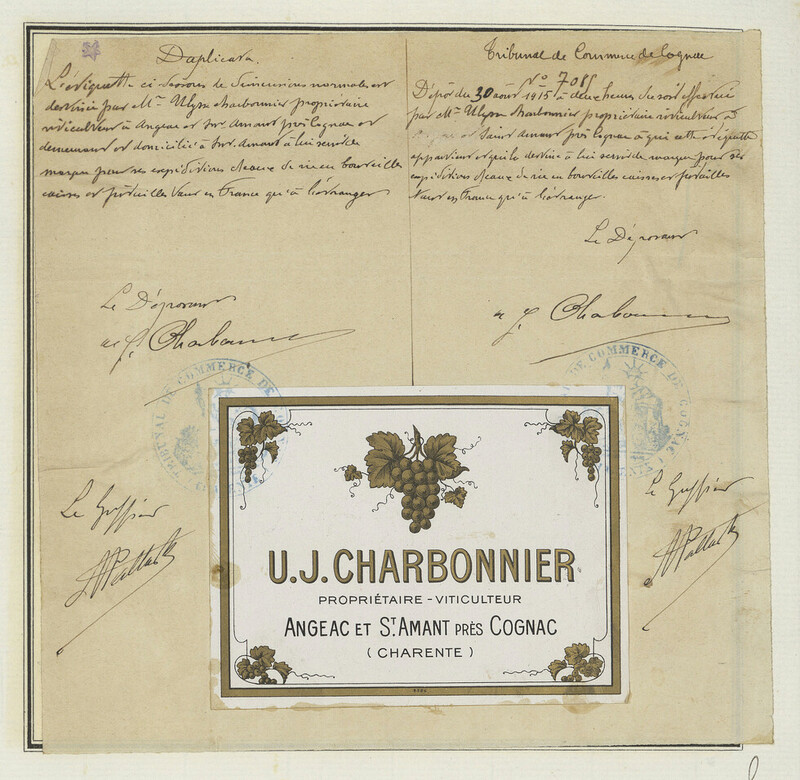 Duplicata
L'étiquette ci dessous de dimensions normales est
destinée par Mr Ulysse Charbonnier propriétaire
viticulteur à Angeac et St Amant près Cognac et
demeurant et domicilié à St Amant à lui servir de
marque pour ses expéditions d'eaux de vie en bouteilles
caisses et futailles tant en France qu'à l'étranger
Le Déposant
U. J. Charbonnier
Le Greffier
Tribunal de Commerce de Cognac
No 7085
Dépôt du 30 août 1915 à deux heures du soir effectué
par Mr Ulysse Charbonnier propriétaire viticulteur à
et Saint Amant près Cognac à qui cette étiquette
appartient et qu'il destine à lui servir de marque pour ses
expéditions d'eaux de vie en bouteilles caisses et futailles
tant en France qu'à l'étranger.
Le Déposant
U. J. Charbonnier
Le Greffier
TRIBUNAL DE COMMERCE DE
DE COMMERCE DE COGNAC
U.J. CHARBONNIER
PROPRIÉTAIRE - VITICULTEUR
ANGEAC ET ST. AMANT PRÈS COGNAC
( CHARENTE )